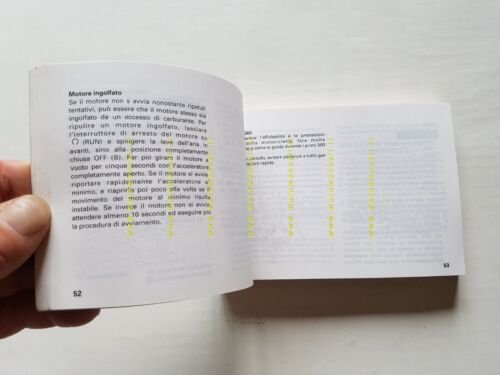 Motore ingolfato
Se il motore non s avvia nonostante ripetuti
tentativi, può essere che il motore stesso sia
ingolfato da un eccesso di carburante. Per
ripulire un motore ingolfato, lasciare
l'interruttore di arresto del motore su
(RUN) e spingere la leva dell'aria in
avanti, sino alla posizione completamente
chiusa OFF (B). Far poi girare il motore a
vuoto per cinque secondi con l'acceleratore
completamente aperto. Se il motore si avvia
riportare rapidamente l'acceleratore al
minimo, e riaprirlo poi poco alla volta se il
movimento del motore al minimo risulta
instabile. Se invece il motore non si avvia,
attendere almeno 10 secondi ed eseguire poi
la procedura di avviamento.
52
GIO
l'affidabilità e le prestazioni
motocicletta, fare molta
a come si guida durante i primi 500
periodo, evitare partenze a tutto gas
rapide.
53